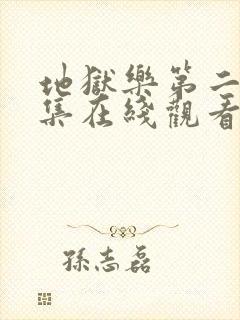 地獄樂第二
集在綫觀看
孫志磊